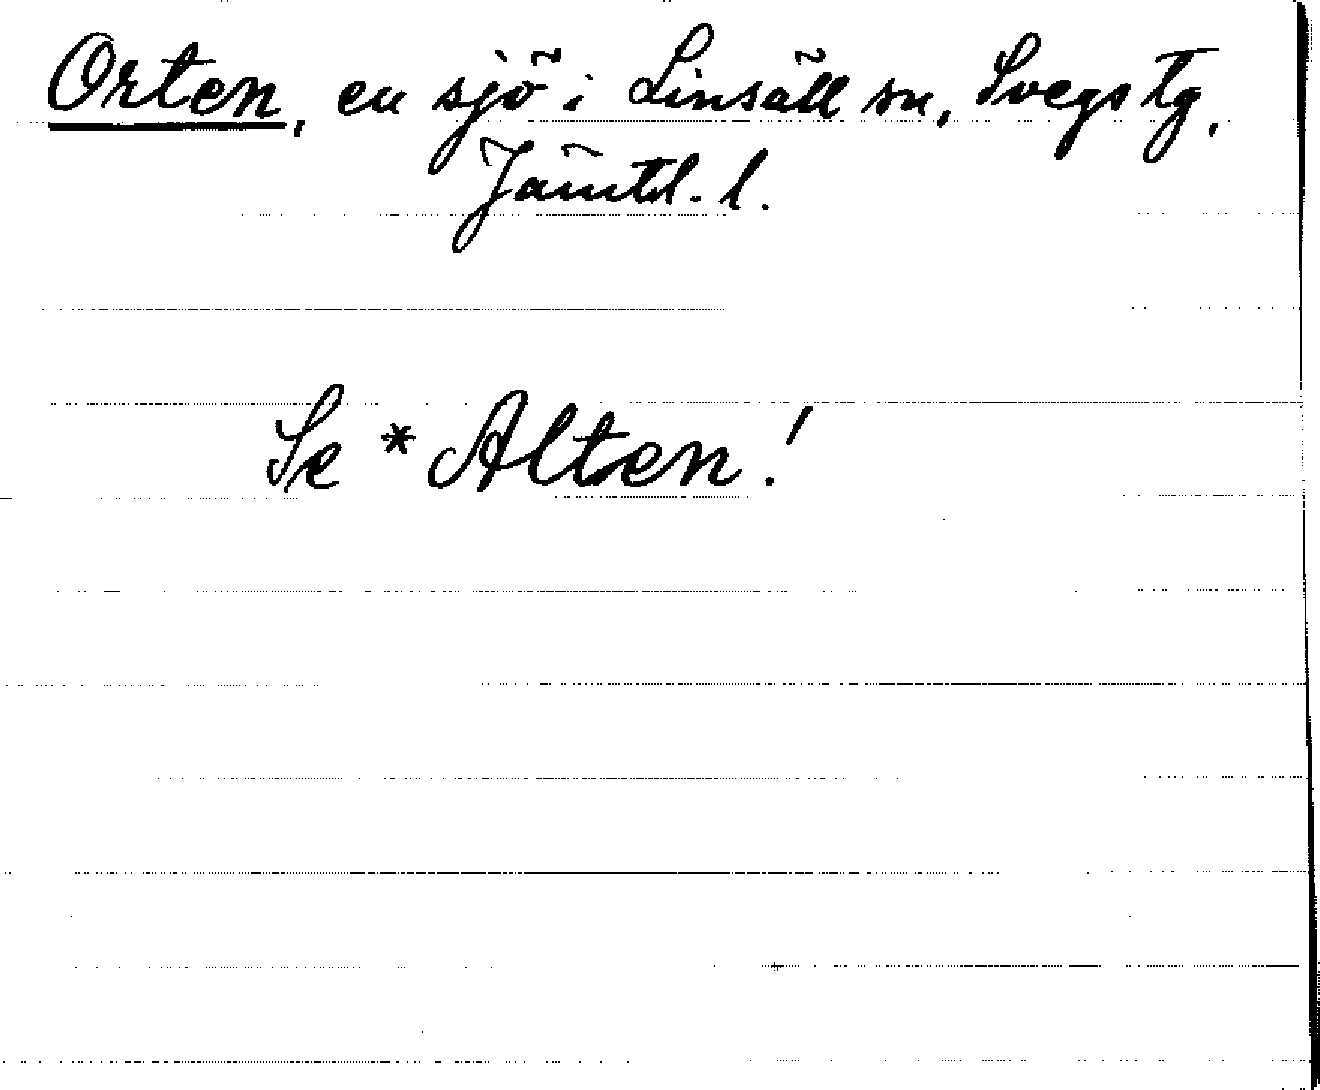 Orten, en sjö i Linsäll sn, Svegs tg,
Jämtl. l.
Se * Alten!